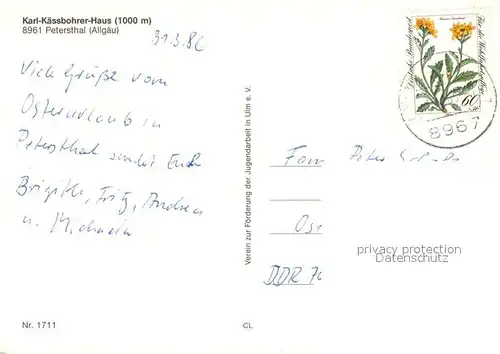 Karl-Kässbohrer-Haus (1000 m)
8961 Petersthal (Allgäu)
31.3.86
Viele Grüße vom
Osterurlaub in
Petersthal sendet Euch
Brigitte, Fritz, Andreas
u. Michaela
Nr. 1711
CL
Verein zur Förderung der Jugendarbeit in Ulm e. V.
Deutsche Bundespost
Für die Wohlfahrtspflege
60
8967
Fam
Peter
DDR 70
privacy protection
Datenschutz